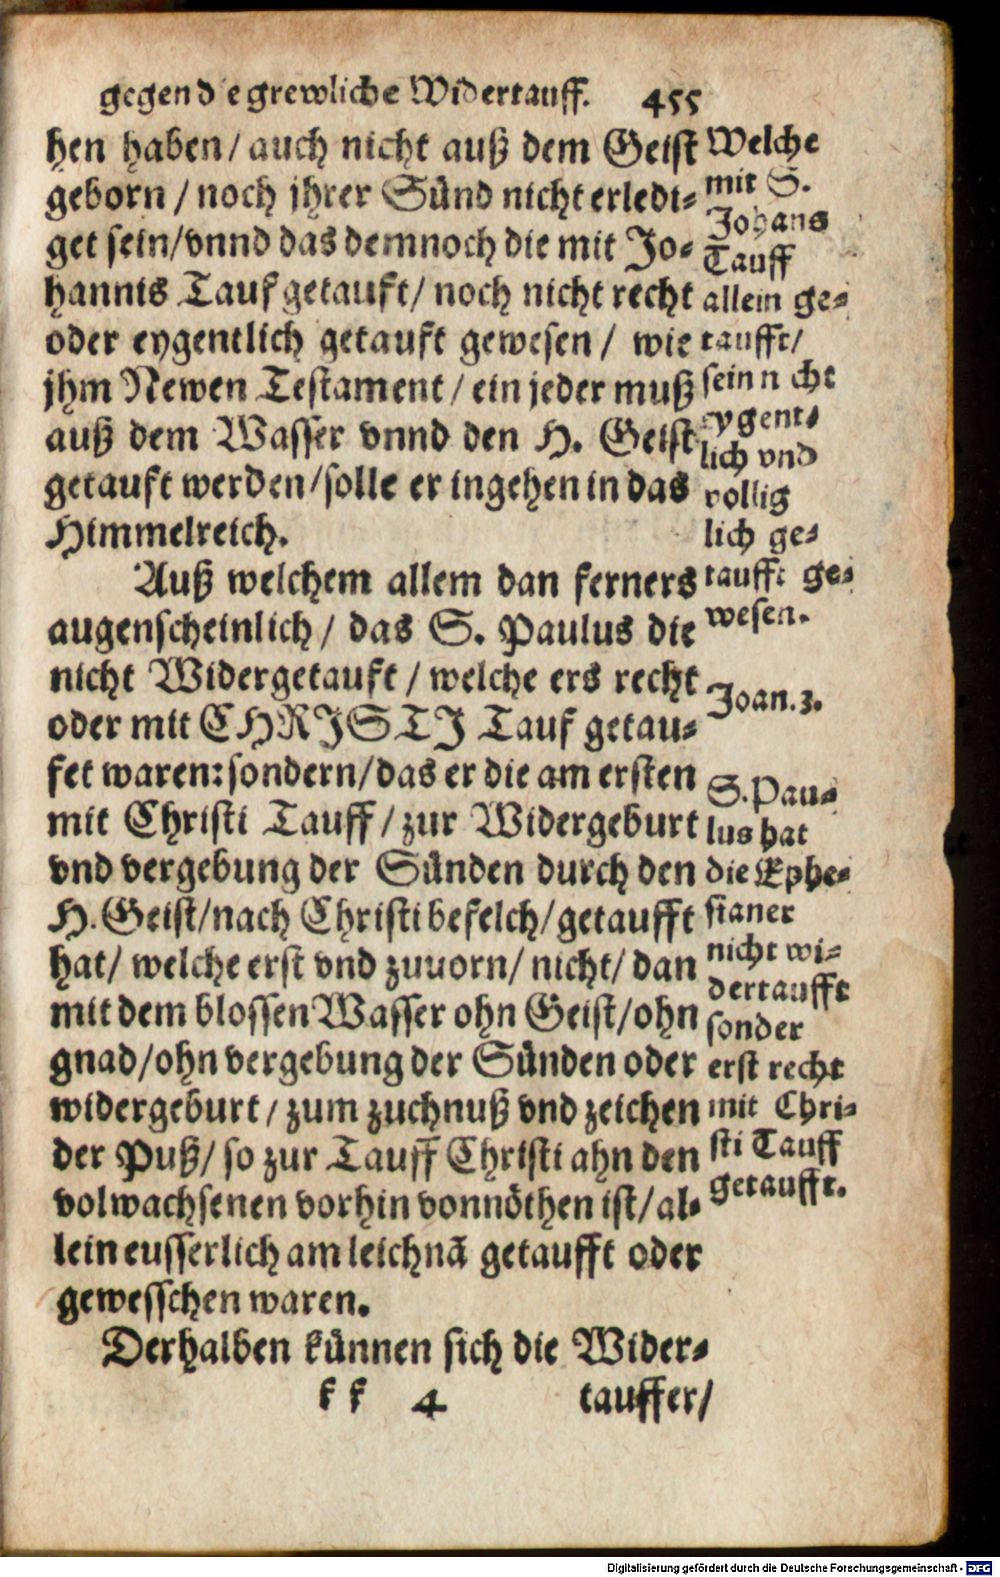 gegen die grewliche Widertauff. 455
hen haben / auch nicht auß dem Geist
geborn / noch jhrer Sünd nicht erledi⸗
get sein / vnnd das demnoch die mit Jo⸗
hannis Tauf getauft / noch nicht recht
oder eygentlich getauft gewesen / wie
jhm Newen Testament / ein jeder muß
auß dem Wasser vnnd den H. Geist
getauft werden / solle er ingehen in das
Himmelreich.
Auß welchem allem dan ferners
augenscheinlich / das S. Paulus die
nicht Widergetauft / welche ers recht
oder mit CHRISTI Tauf getau⸗
fet waren: sondern / das er die am ersten
mit Christi Tauff / zur Widergeburt
vnd vergebung der Sünden durch den
H. Geist / nach Christi befelch / getaufft
hat / welche erst vnd zuuorn / nicht / dan
mit dem blossen Wasser ohn Geist / ohn
gnad / ohn vergebung der Sünden oder
widergeburt / zum zuchnuß vnd zeichen
der Puß / so zur Tauff Christi ahn den
volwachsenen vorhin vonnöthen ist / al⸗
lein eusserlich am leichnā getaufft oder
gewesschen waren.
Derhalben künnen sich die Wider⸗
kk 4 tauffer /
Welche
mit S.
Johans
Tauff
allein ge⸗
taufft /
sein n cht
eygent⸗
lich vnd
vollig
lich ge⸗
taufft ge⸗
wesen.
Joan. 3.
S. Pau⸗
lus hat
die Ephe⸗
sianer
nicht wi⸗
dertaufft
sonder
erst recht
mit Chri⸗
sti Tauff
getaufft.
Digitalisierung gefördert durch die Deutsche Forschungsgemeinschaft - DFG